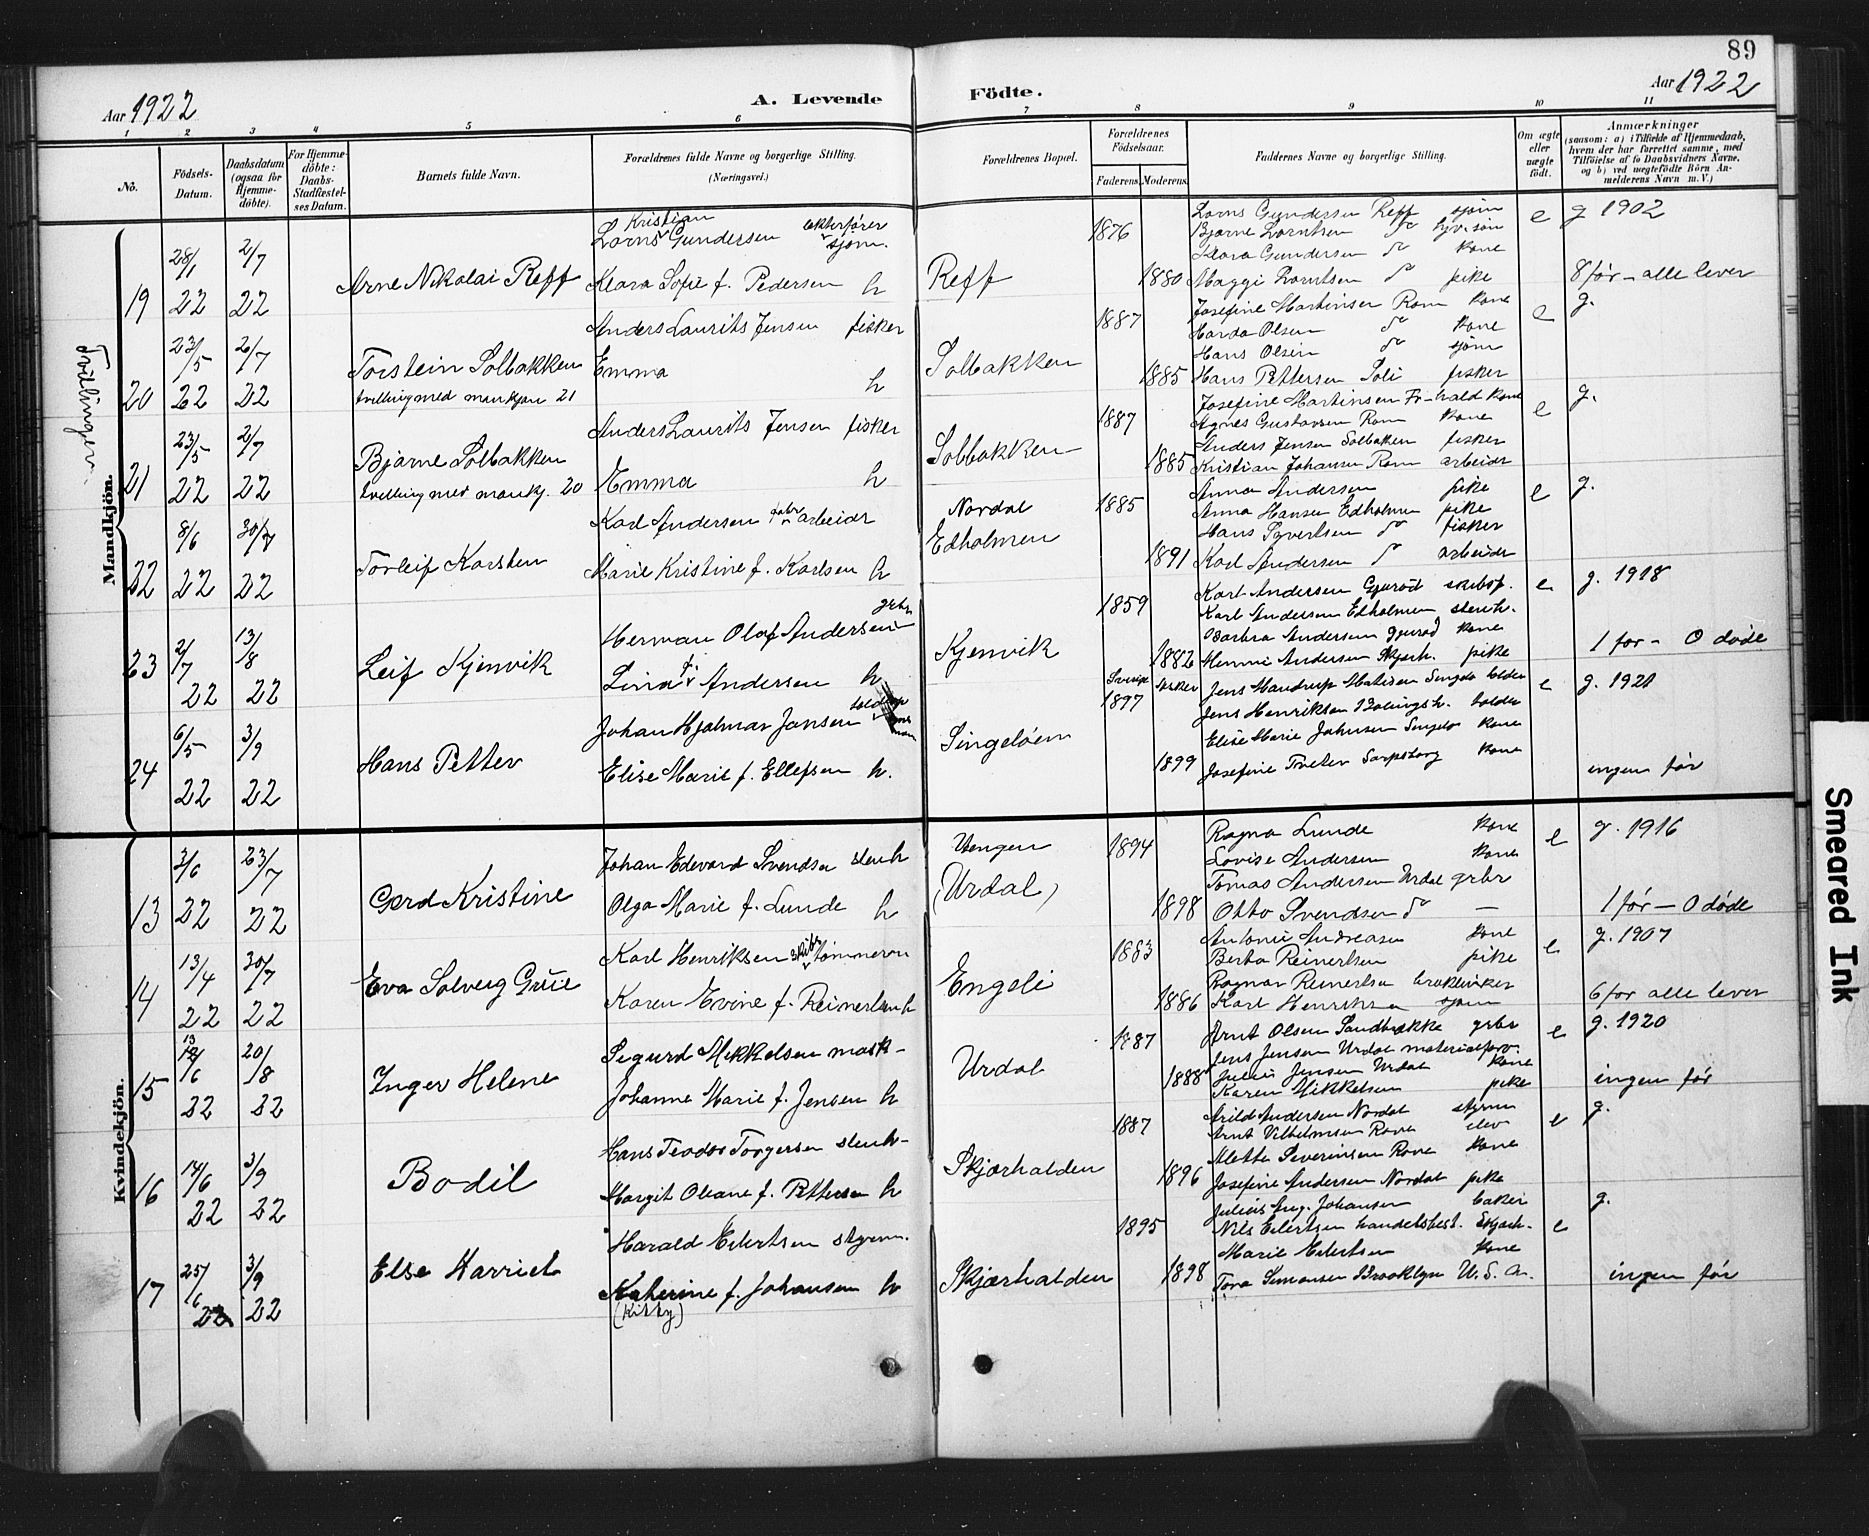 89
Aar 1922
A. Levende
Födte.
Aar 1922
1 2 3 4 5 6 7 8 9 10 11
No.
Födsels-Datum.
Daabsdatum (ogsaa for Hjemme-döbte).
For Hjemme-döbte: Daabs-Stadfæstel-ses Datum.
Barnets fulde Navn.
Forældrenes fulde Navne og borgerlige Stilling.
(Næringsvei.)
Forældrenes Bopæl.
Forældrenes Födselsaar.
Faderens. Moderens.
Faddernes Navne og borgerlige Stilling.
Om ægte eller uægte födt.
Anmærkninger
(saasom: a) i Tilfælde af Hjemmedaab,
hvem der har forrettet samme, med
Tilföielse af to Daabsvidners Navne,
og b) ved uægtefödte Börn An-
melderens Navn m.V.)
Mandkjön.
Tvillinger
19
28/1 22
2/7 22
Arne Nikolai Reff
Kristian
Lorns Gundersen sjøm.
Klara Sofie f. Pedersen h
Reff
1876
1880
Lorns Gundersen Reff sjøm
Bjarne Lorntsen do
Klara Gundersen do kone
Maggi Lorntsen do pike
e
g 1902
8 før - alle lever
20
23/5 22
2/7 22
Torstein Solbakken
tvilling med mankjøn 21
Anders Laurits Jensen fisker
Emma h
Solbakken
1887
1885
Josefine Martinsen Rom kone
Harda Olsen do kone
Hans Olsen do sjøm
Hans Pettersen Soli fisker
e
g.
21
23/5 22
2/7 22
Bjarne Solbakken
tvilling med mankj. 20
Anders Laurits Jensen fisker
Emma h
Solbakken
1887
1885
Josefine Martinsen kone
Agnes Gustavsen Rom kone
Anders Jensen Solbakken fisker
Kristian Johansen Rom arbeidr
e
g.
22
8/6 22
30/7 22
Torleif Karsten
Karl Andersen fabr arbeidr
Marie Kristine f. Karlsen h
Nordal
Edholmen
1885
1891
Anna Andersen pike
Anna Hansen Edholmen pike
Hans Syvertsen do fisker
Karl Andersen do arbeidr
e
g.
23
2/7 22
13/8 22
Leif Kjenvik
Herman Olaf Andersen grbr
Lina f. Andersen h
Kjenvik
1859
1882
Karl Andersen Gjurød skibsf.
Karl Andersen Edholmen stenh.
Barbra Andersen Gjurød kone
Henni Andersen Skjærh. pike
e
g. 1918
1 før - 0 døde
24
6/5 22
3/9 22
Hans Petter
Johan Hjalmar Jansen
Elise Marie f. Ellefsen h.
Singeløem
Sverige
1897
1899
Jens Mandrup Matisen Singelø tolder
Jens Henriksen tolder
Elise Marie Johnsen Singelø kone
Josefine Sarpsborg kone
e
g. 1921
ingen før
Kvindekjön.
13
3/6 22
23/7 22
Gerd Kristine
Johan Edevard Svendsen stenh
Olga Marie f. Lunde h
Vengen
(Urdal)
1894
1898
Ragna Lunde kone
Lovise Andersen kone
Tomas Andersen Urdal grbr
Otto Svendsen do —
e
g. 1916
1 før - 0 døde
14
13/4 22
30/7 22
Eva Solveig Grüe
Karl Henriksen skibstømmerm
Karen Evine f. Reinertsen h
Engeli
1883
1886
Antonie Andreasen kone
Berta Reinertsen pike
Ragnar Reinertsen
Karl Henriksen sjøm
e
g. 1907
6 før alle lever
15
13
12/6 22
20/8 22
Inger Helene
Sigurd Mikkelsen mask-
Johanne Marie f. Jensen h
Urdal
1887
1888
Arnt Olsen Sandbrække grbr
Jens Jensen Urdal materialforv.
Julie Jensen Urdal kone
Karen Mikkelsen pike
e
g. 1920
ingen før
16
14/6 22
3/9 22
Bodil
Hans Teodor Torgersen stenh-
Margit Oleane f. Pettersen h
Skjærhalden
1887
1896
Arild Andersen Nordal styrm
Arnt Vilhelmsen Rove elev
Mette Severinsen Rove kone
Josefine Andersen Nordal pike
e
g.
17
25/6 22
3/9 22
Else Harriet
Harald Eilertsen styrm.
Katherine f. Johansen h
(Kitty)
Skjærhalden
1895
1898
Julius Aug. Johansen baker
Nils Eilertsen handelsbest. Skjærh.
Marie Eilertsen kone
Tora Simonsen Brooklyn U.S.A.
e
g.
ingen før
Smeared Ink